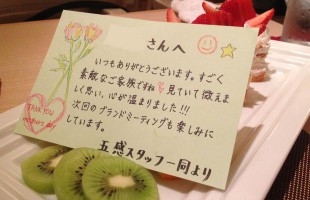 さんへ
いつもありがとうございます。すごく
素敵なご家族ですね 見ていて微えま
しく思い、心が温まりました!!!
次回のグランドミーティングも楽しみに
しています。
五感スタッフ一同より
THANK YOU